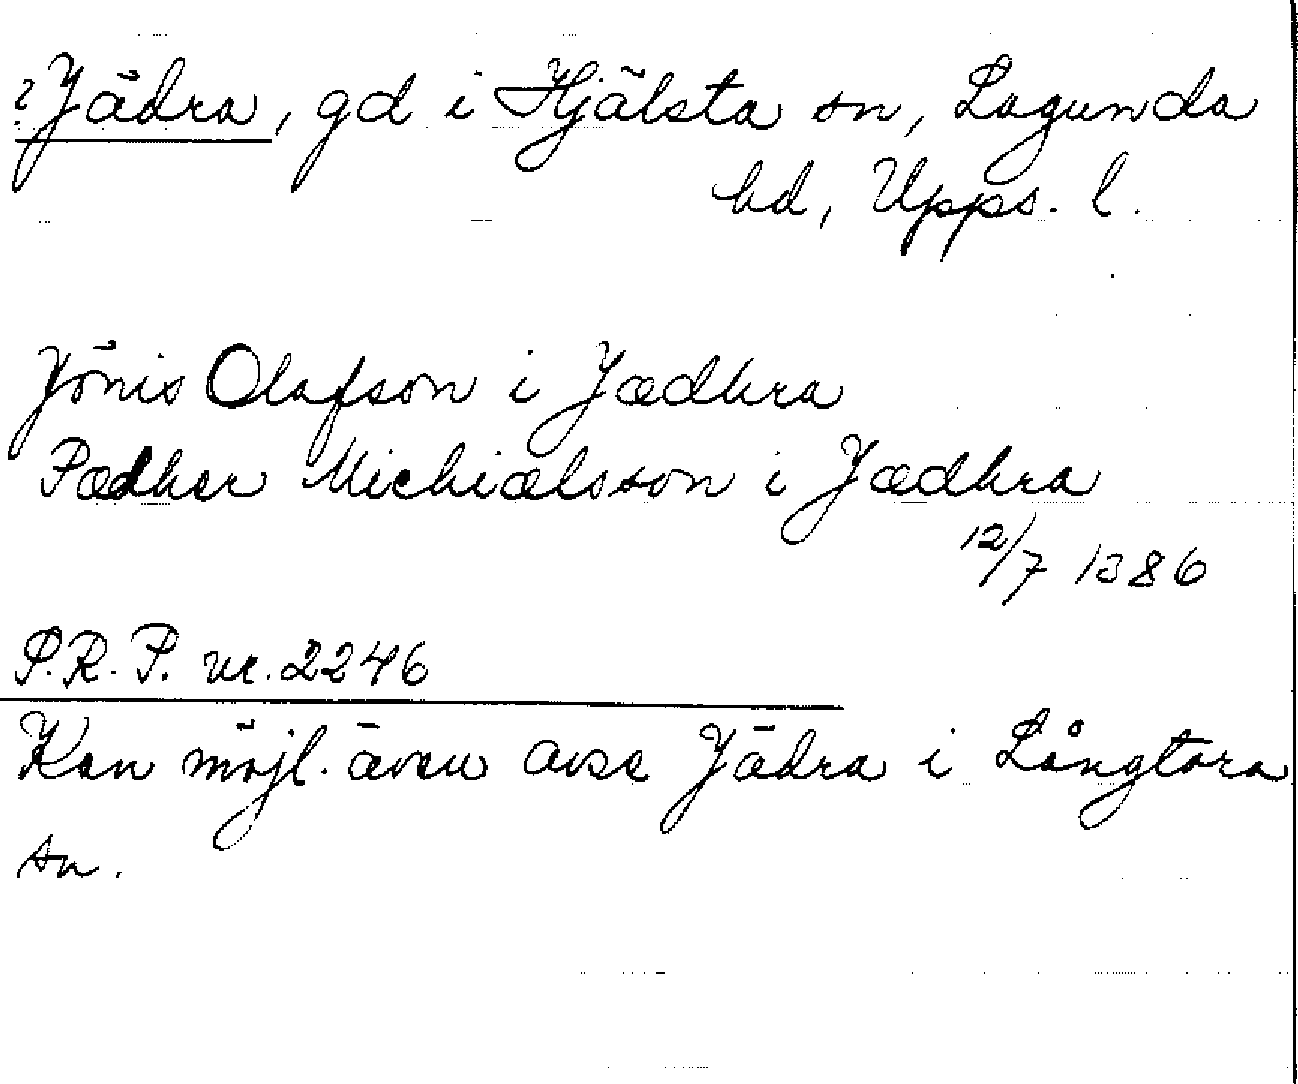 ? Jädra, gd i Hjälsta sn, Lagunda
hd, Upps. l.
Jönis Olafson i Jædhra
Pædher Michiælsson i Jædhra
12/7 1386
S.R.P. nr. 2246
Kan möjl. även avse Jädra i Långtora
sn.